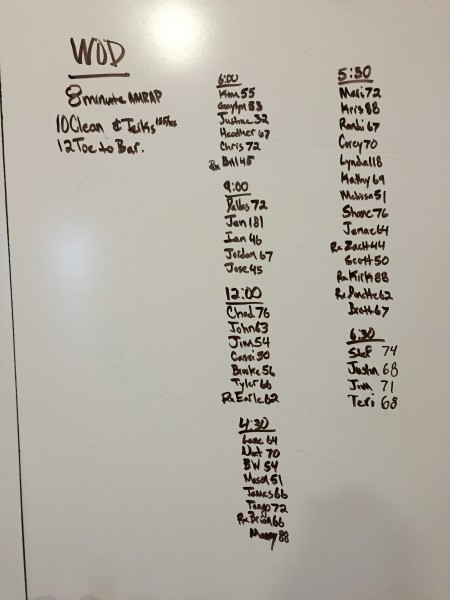 WOD
8 minute AMRAP
10 Clean & Jerks
12 Toe to Bar.
6:00
Kim 55
53
Justine 32
Heather 67
Chris 72
Rx Bill 45
9:00
Dallas 72
Jen 181
Ian 46
Jordan 67
Jose 45
12:00
Chad 76
John 63
Jim 54
Cassi 50
Brooke 56
Tyler 66
Rx Earle 62
4:30
Lane 64
Nat 70
BW 54
Mason 51
James 66
Tango 72
Rx Brian 66
Manny 88
5:30
Mari 72
Kris 88
Randi 67
Corey 70
Lynda 118
Kathy 69
Melissa 51
Shane 76
Jenae 64
Rx Zach 44
Scott 50
Rx Kirk 88
Rx 62
Brett 67
6:30
Stef 74
Justin 68
Jim 71
Teri 68